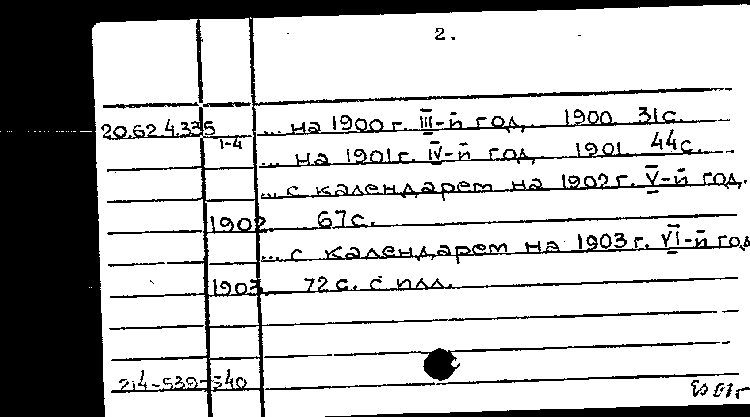 2.
20.62 4.335 ... на 1900 г. III-й год, 1900 31с.
1-4 ... на 1901г. IV-й год, 1901 44с.
... с календарем на 1902 г. V-й год.
1902 67с.
... с календарем на 1903 г. VI-й год
1903 72 с. с илл.
214-539-540